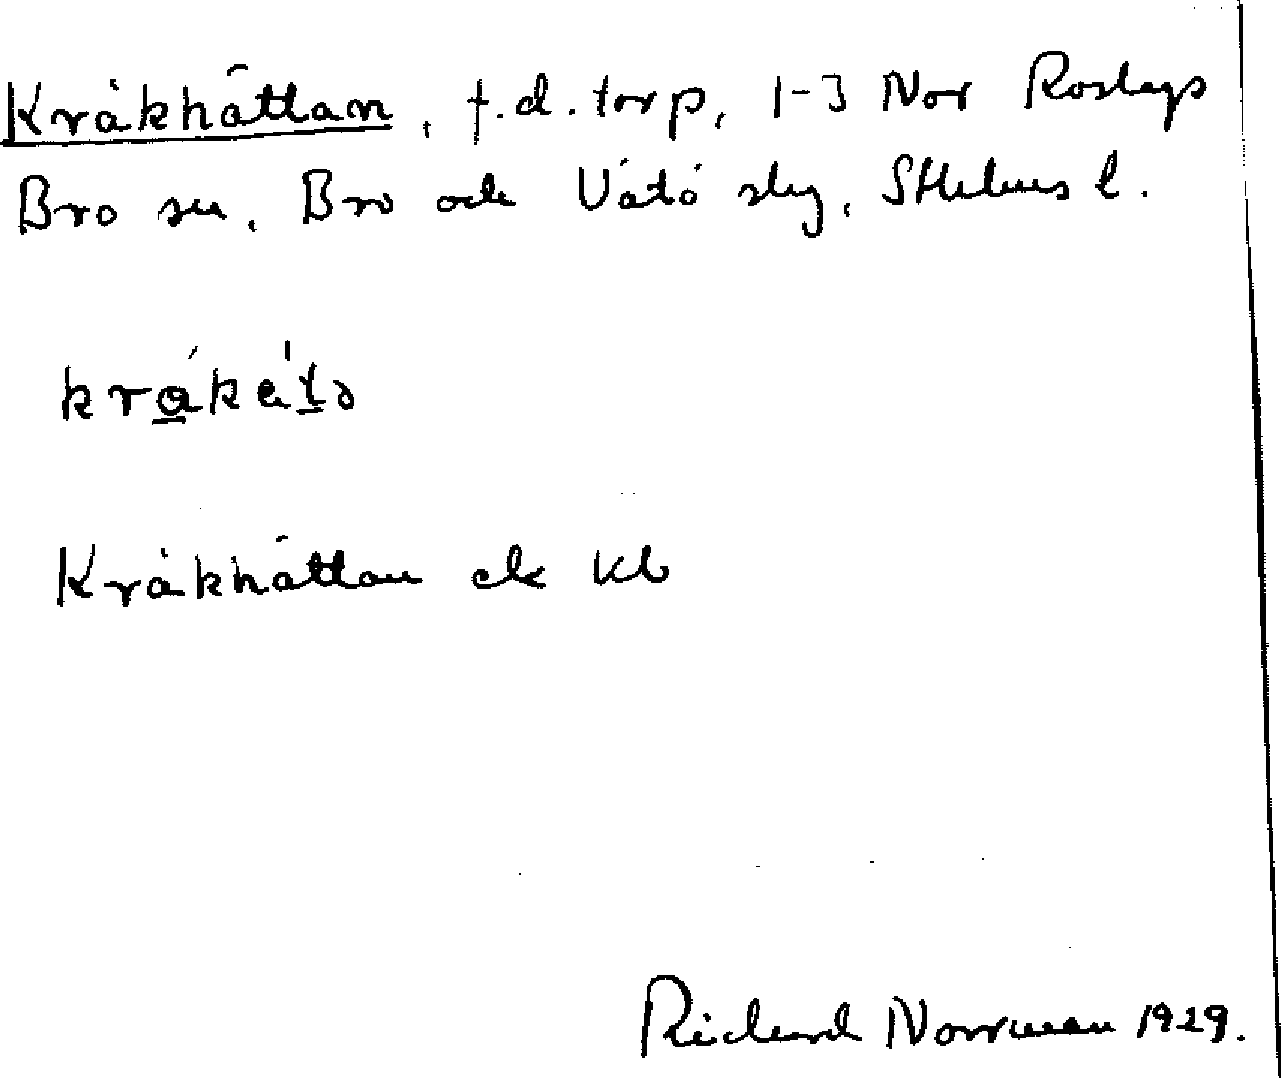 Kråkhättan, f.d. torp, 1-3 Nor Roslags
Bro sn, Bro och Vätö skg, Sthlms l.
Kråkhättan ek kb
Richard Norrman 1929.